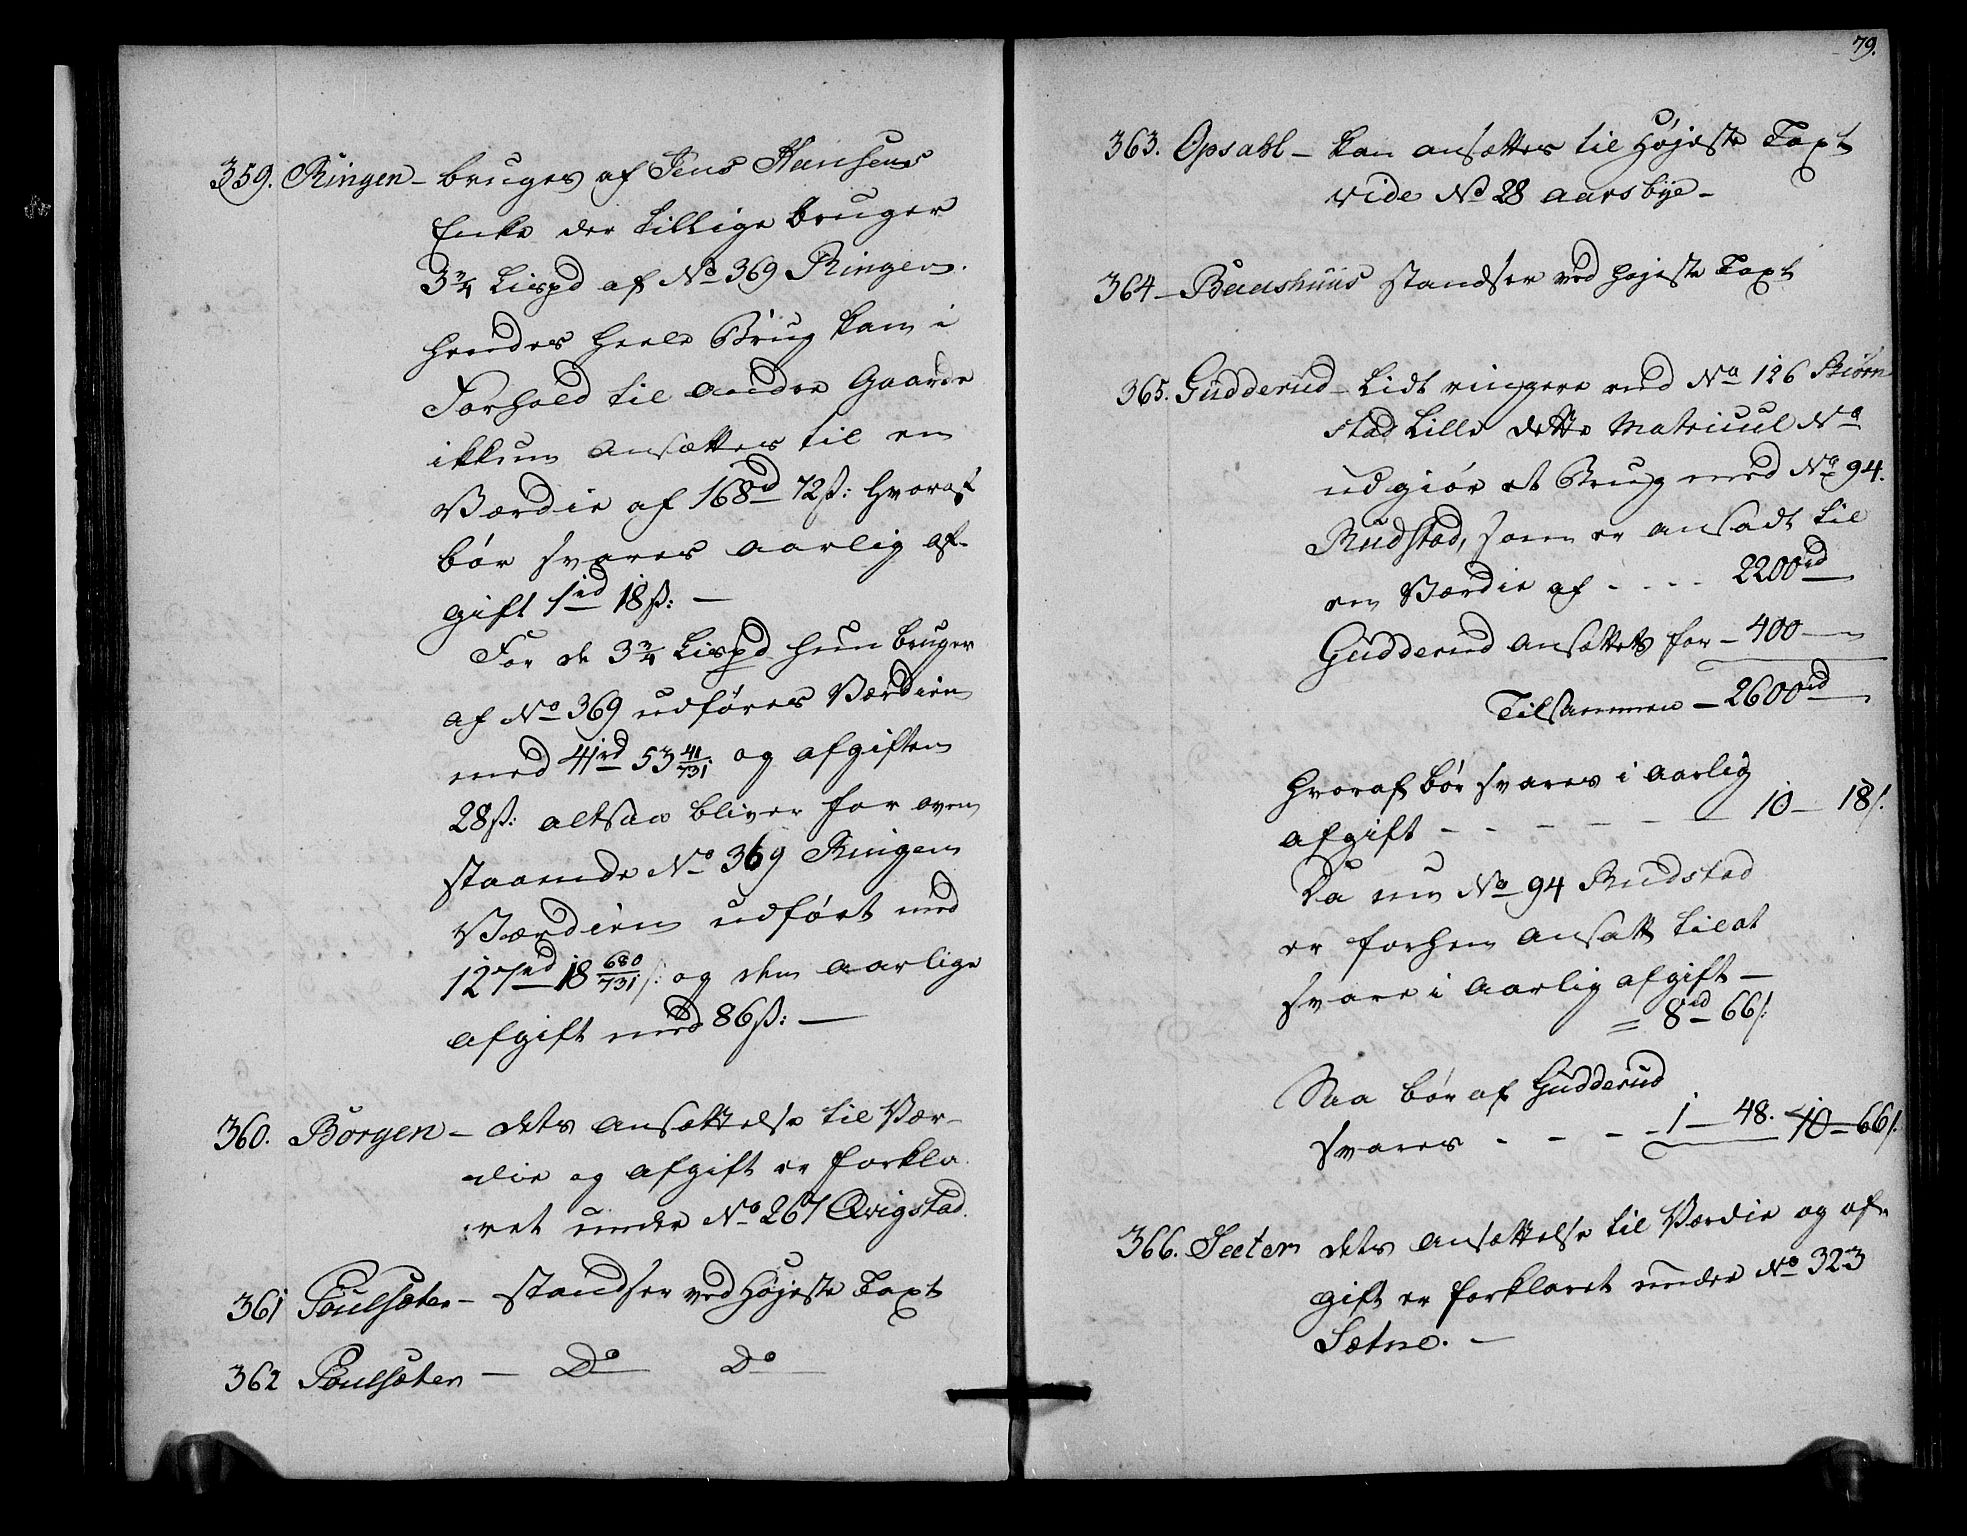 359. Ringen - bruges af Jens Hansens
Enke der tillige bruger
3¾ Lispd af No 369 Ringen.
hendes heele Brug kan i
Forhold til andre Gaarde
ikkun ansættes til en
Værdie af 168rd 72ß: hvoraf
bør svares aarlig af-
gift 1rd 18ß: —
For de 3¾ Lispd hun bruger
af No 369 udføres Værdien
med 41rd 53 41/731 og afgiften
28ß: altsaa bliver for oven
staaende No 369 Ringen
Værdien udført med
127rd 18 680/731 ß: og den aarlige
afgift med 86ß: —
360. Borgen - dets ansættelse til Vær-
die og afgift er forkla
ret under No 267 Qvigstad.
361 Poulsæter - standser ved Højeste Taxt
362 Poulsæter - Do Do
79.
363. Opsahl - kan ansættes til Højeste Taxt
vide No 28 Aarsbye -
364 - Baashuus standser ved højeste Taxt
365. Gudderud - Lidt ringere end No 126 Biørn
stad Lille dette Matricul No
udgiør et Brug med No 94.
Rudstad, som er ansadt til
en Værdie af - - - - 2200rd
Gudderud ansættets for - 400 —
Tilsammen - 2600rd
hvoraf bør svares i aarlig
afgift - - - - - - 10 - 18ß.
Da nu No 94 Rudstad
er forhen ansatt til at
svare i aarlig afgift -
= 8rd 66ß:
Saa bør af Gudderud
svares - - - - 1 - 48. 10 - 66ß.
366. Seeter dets ansættelse til Værdie og af-
gift er forklaret under No 323
Sætne. -